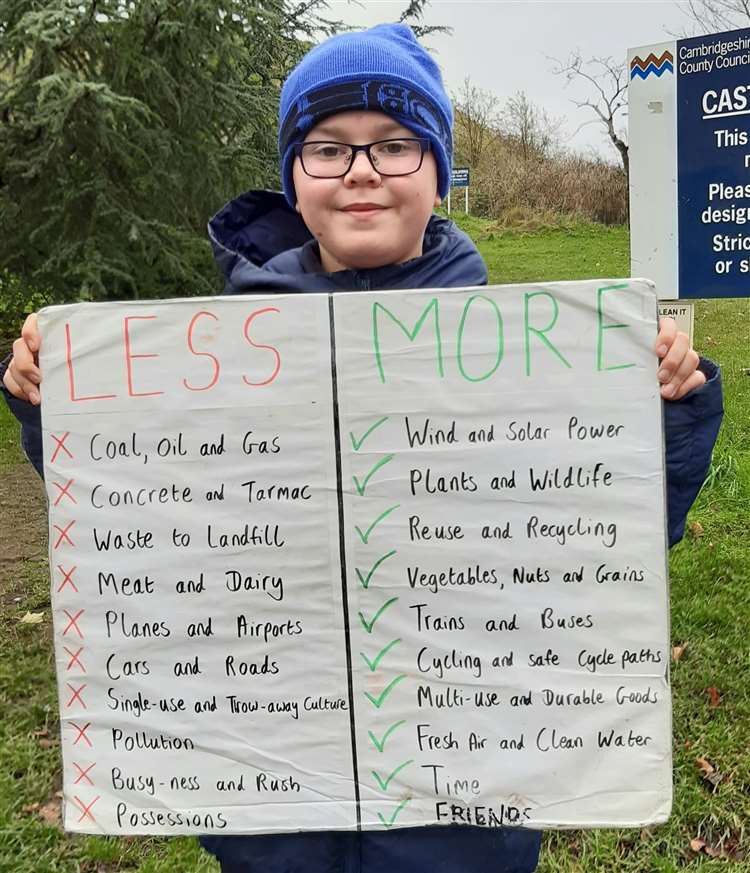 Cambridgeshire
County Council
CAST
This
Pleas
design
Stric
or s
LEAN IT
LESS
X Coal, Oil and Gas
X Concrete and Tarmac
X Waste to Landfill
X Meat and Dairy
X Planes and Airports
X Cars and Roads
X Single-use and Trow-away Culture
X Pollution
X Busy-ness and Rush
X Possessions
MORE
✓ Wind and Solar Power
✓ Plants and Wildlife
✓ Reuse and Recycling
✓ Vegetables, Nuts and Grains
✓ Trains and Buses
✓ Cycling and safe Cycle paths
✓ Multi-use and Durable Goods
✓ Fresh Air and Clean Water
✓ Time
✓ FRIENDS